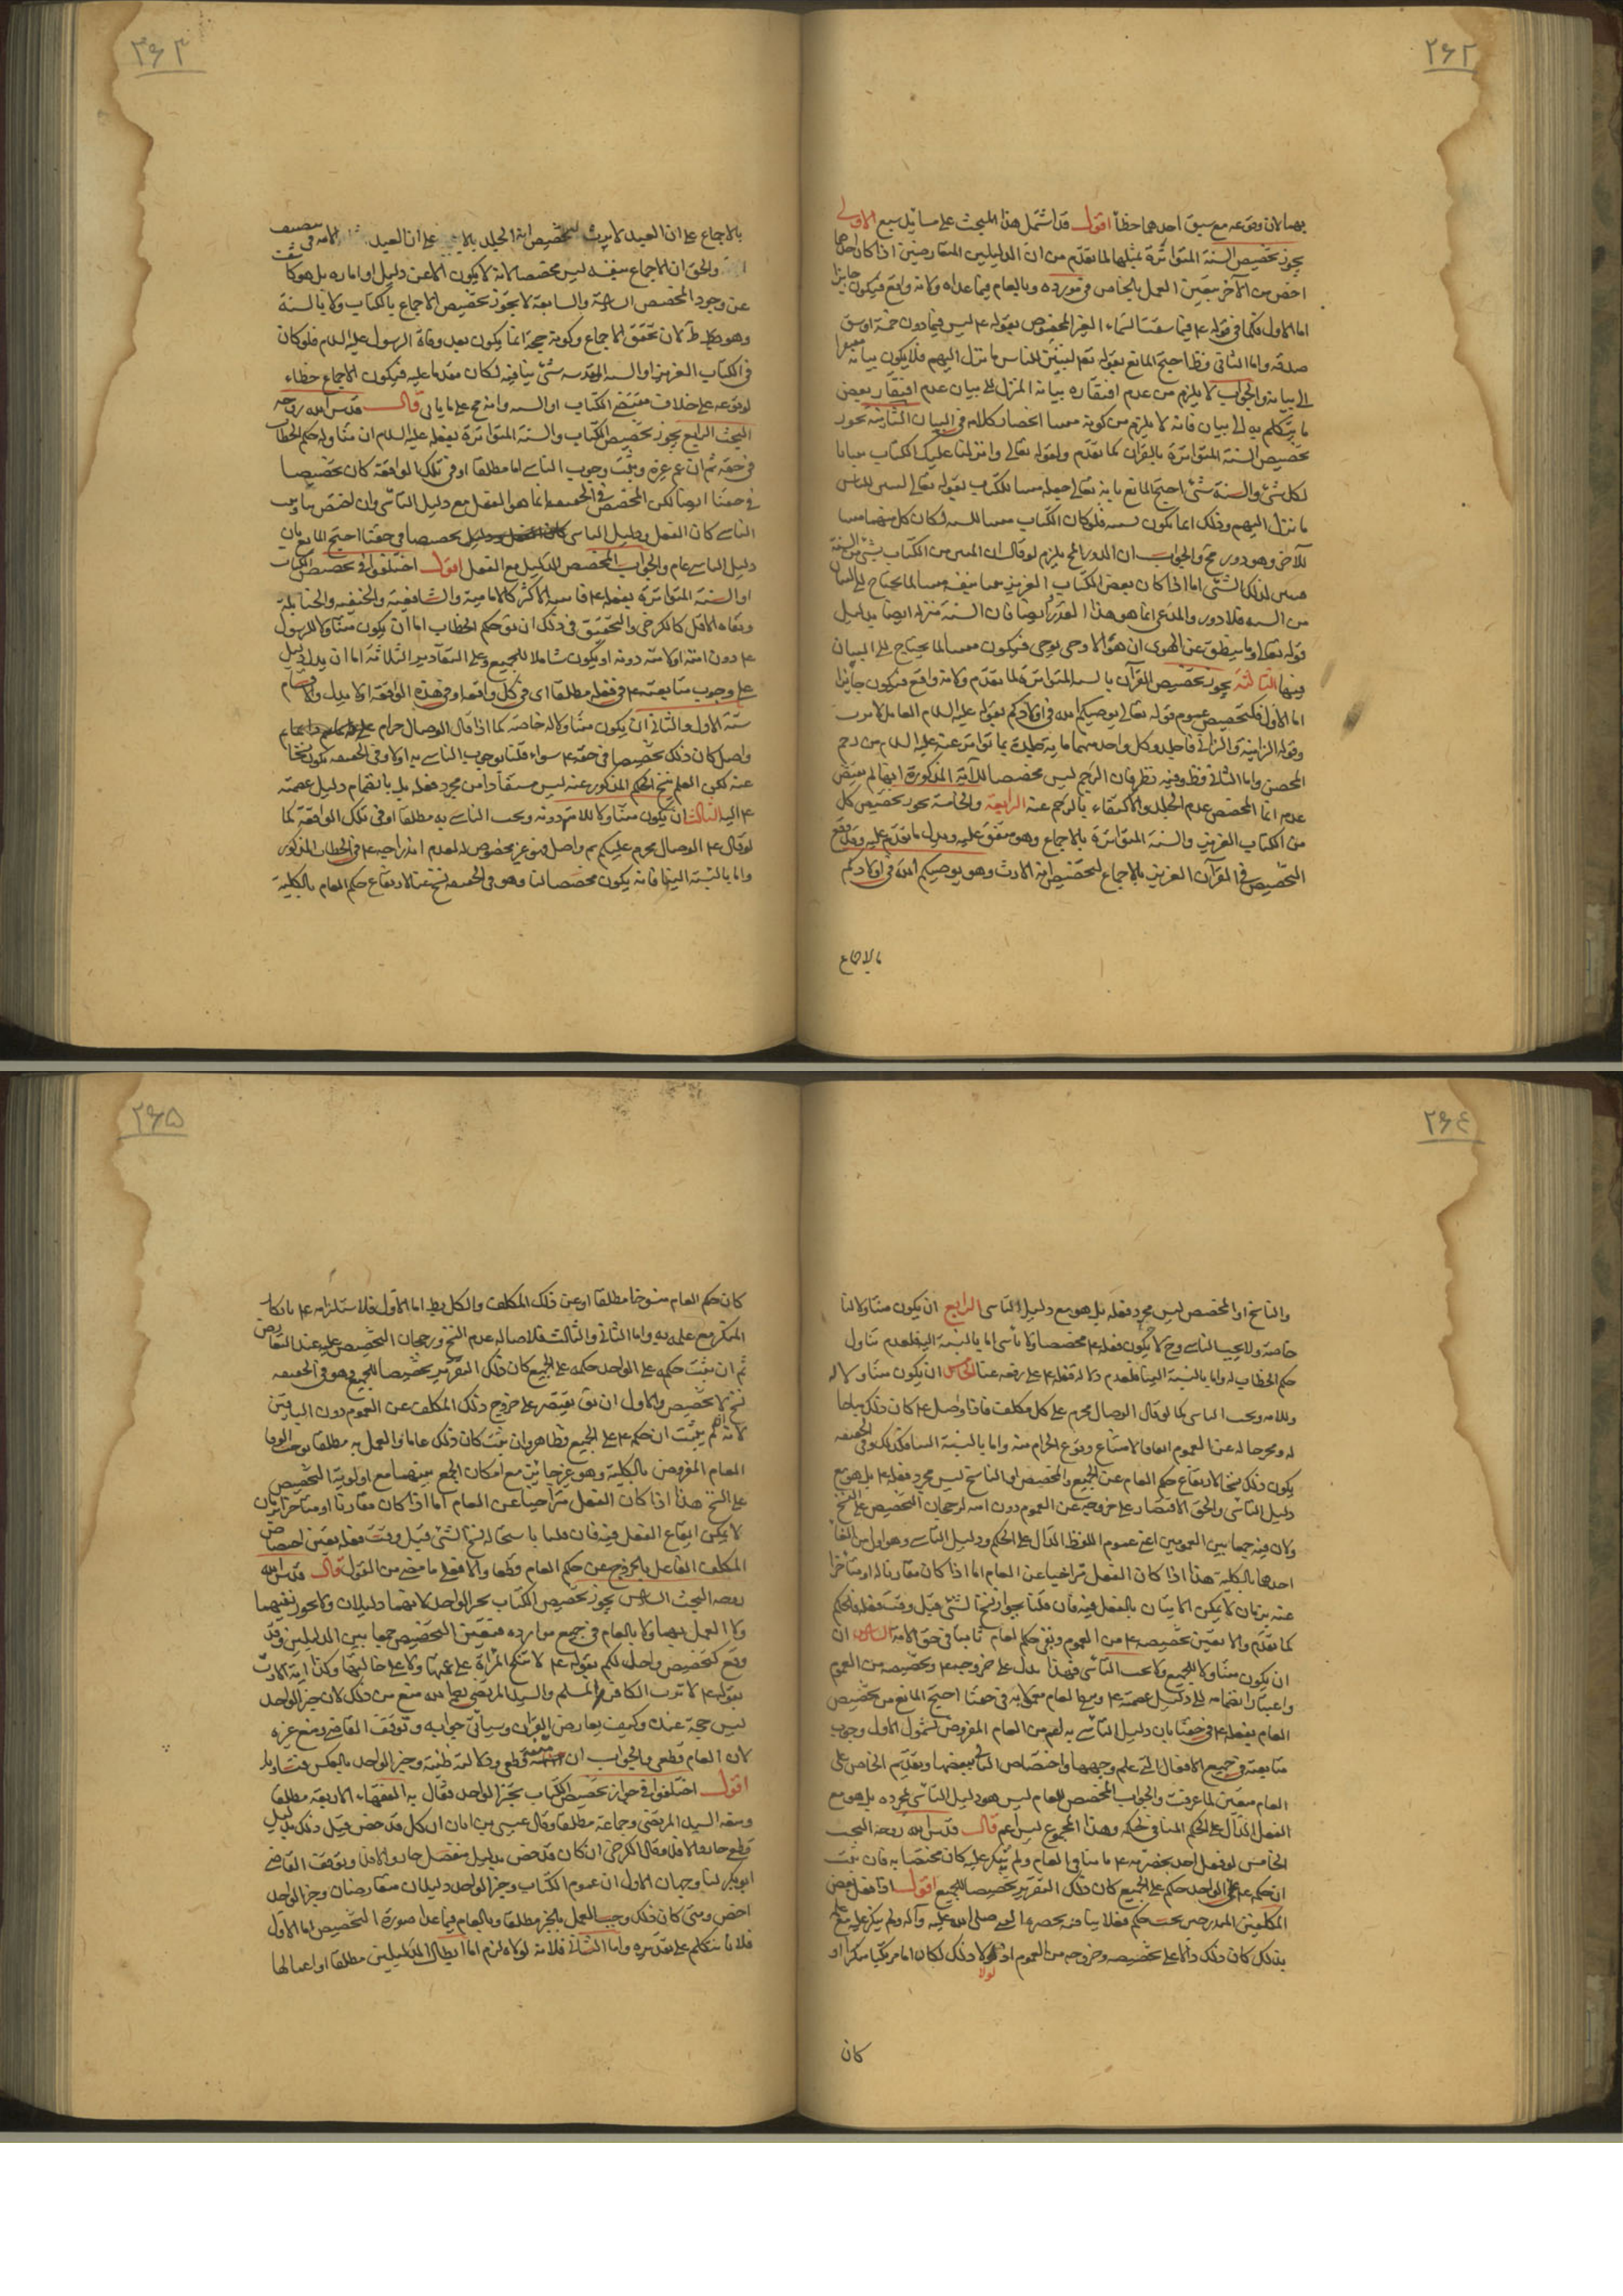 ٢۶٢
بهما لان وقوعه مع سبق احدهما خطأ اقول قد اشتمل هذا المبحث على مسائل سبع الاولى
يجوز تخصيص السنة المتواترة بمثلها لما تقدم من ان الدليلين المتعارضين اذا كان احدهما
اخص من الآخر تعين العمل بالخاص فى مورده وبالعام فيما عداه ولانه واقع فيكون جايزا
اما الاول فكما فى قوله ع فيما سقت السماء العشر المخصوص بقوله ع ليس فيما دون خمسة اوسق
صدقة واما الثانى فظ احتج المانع بقوله تعم لتبين للناس ما نزل اليهم فلا يكون بيانه مفتقرا
الى بيانه والجواب لا يلزم من عدم افتقاره بيانه المنزل الى بيان عدم افتقار بعض
ما يتكلم به الى بيان فانه لا يلزم من كونه مبينا انحصار كلامه فى البيان الثانية يجوز
تخصيص السنة المتواترة بالقرآن لما تقدم ولقوله تعالى وانزلنا عليك الكتاب تبيانا
لكل شئ والسنة شئ احتج المانع بانه تعالى جعله مبينا للكتاب بقوله تعالى لتبين للناس
ما نزل اليهم وذلك انما يكون بسنته فلو كان الكتاب مبينا للسنة لكان كل منهما مبينا
للآخر وهو دور مح والجواب ان الدور انما يلزم لو قال ان المبين من الكتاب بشئ من السنة
مبين لذلك الشئ اما اذا كان بعض الكتاب العزيز مبينا بنفسه مبينا لما يحتاج الى البيان
من السنة فلا دور والمدعى انما هو هذا القدر ايضا فان السنة منزلة ايضا بدليل
قوله تعالى وما ينطق عن الهوى ان هو الا وحى يوحى فيكون مبينا لما يحتاج الى البيان
فيها الثالثة يجوز تخصيص القرآن بالسنة المتواترة لما تقدم ولانه واقع فيكون جايزا
اما الاول فكتخصيص عموم قوله تعالى يوصيكم الله فى اولادكم بقوله عليه السلام القاتل لا يرث
وقوله الزانية والزانى فاجلدوا كل واحد منهما مائة جلدة بما تواتر عنه عليه السلام من رجم
المحصن واما الثانى فظ وفيه نظر فان الرجم ليس مخصصا للآية المذكورة اذ بها لم ينتف
عدم انما المخصص عدم الجلد والاكتفاء بالرجم عنه الرابعة والخامسة يجوز تخصيص كل
من الكتاب العزيز والسنة المتواترة بالاجماع وهو متفق عليه ويدل ما تقدم عليه وقد وقع
التخصيص فى القرآن العزيز بالاجماع لتخصيص آية الارث وهو يوصيكم الله فى اولادكم
بالاجماع
٢۶٣
بالاجماع على ان العبد لا يرث لتخصيص آية الجلد على ان العبد
والحق ان الاجماع بنفسه ليس مخصصا لانه لا يكون الا عن دليل او امارة بل هو كا
عن وجود المخصص السادسة والسابعة لا يجوز تخصيص الاجماع بالكتاب ولا بالسنة
وهو ظ لان تحقق الاجماع وكونه حجة انما يكون بعد وفاة الرسول عليه السلام فلو كان
فى الكتاب العزيز او السنة المقدسة شئ ينافيه لكان مقدما عليه فيكون الاجماع خطاء
لوقوعه على خلاف مقتضى الكتاب او السنة وانه مح على ما ياتى قال قدس الله روحه
البحث الرابع يجوز تخصيص الكتاب والسنة المتواترة بفعله عليه السلام ان تناوله حكم الخطاب
فى حقه ثم ان عم غيره وثبت وجوب التاسى اما مطلقا او فى تلك الواقعة كان تخصيصا
فى حقنا ايضا لكن المخصص فى الحقيقة انما هو الفعل مع دليل التاسى وان اختص بنا وثبت
التاسى كان الفعل ودليل التاسى تخصيصا فى حقنا احتج المانع بان
دليل التاسى عام والجواب المخصص الدليل مع الفعل اقول اختلفوا فى تخصيص الكتاب
او السنة المتواترة بفعله ع فاثبته الاكثر كالامامية والشافعية والحنفية والحنابلة
ونفاه الاقل كالكرخى والتحقيق فى ذلك ان نق حكم الخطاب اما ان يكون متناولا للرسول
ع دون امته او لامته دونه او يكون شاملا للجميع وعلى التقادير الثلاثة اما ان يدل دليل
على وجوب متابعته ع فى فعله مطلقا اى فى كل واقعة او فى هذه الواقعة او لا يدل والاقسام
ستة الاول والثانى ان يكون متناولا له خاصة كما اذا قال الوصال حرام على
واصل كان ذلك تخصيصا فى حقه ع سواء قلنا بوجوب التاسى به او لا وفى الحقيقة يكون نسخا
عنه لكن العلم بنسخ الحكم المذكور عنه ليس مستفادا من مجرد فعله بل بانضمام دليل عصمته
ع اليه الثالث ان يكون متناولا للامة دونه ويجب التاسى به مطلقا او فى تلك الواقعة كما
لو قال ع الوصال يحرم عليكم ثم واصل فهو غير مخصوص له لعدم اندراجه ع فى الخطاب المذكور
واما بالنسبة الينا فانه يكون مخصصا لنا وهو فى الحقيقة نسخ عنا لارتفاع حكم العام بالكلية
٢۶٤
والناسخ او المخصص ليس مجرد فعله بل هو مع دليل التاسى الرابع ان يكون متناولا لنا
خاصة ولا يجب التاسى وح لا يكون فعله ع مخصصا ولا ناسخا اما بالنسبة اليه فلعدم تناول
حكم الخطاب له واما بالنسبة الينا فلعدم دلالة فعله ع على رفعه عنا الخامس ان يكون متناولا له
وللامة ويجب التاسى كما لو قال الوصال محرم على كل مكلف فاذا واصل ع كان ذلك مباحا
له ومخرجا له عن العموم اتفاقا لامتناع وقوع الحرام منه واما بالنسبة الينا فكذلك وفى الحقيقة
يكون ذلك نسخا لارتفاع حكم العام عن الجميع والمخصص او الناسخ ليس مجرد فعله ع بل هو مع
دليل التاسى والحق الاقتصار على خروجه عن العموم دون امته لرجحان التخصيص على النسخ
ولان فيه جمعا بين العمومين اعنى عموم اللفظ الدال على الحكم ودليل التاسى وهو اولى من الغاء
احدهما بالكلية هذا اذا كان الفعل متراخيا عن العام اما اذا كان مقارنا له او متأخرا
عنه بزمان لا يمكن الاتيان بالفعل فيه فان قلنا بجواز نسخ الشئ قبل وقت فعله فالحكم
كما تقدم والا تعين تخصيصه ع من العموم وبقى حكم العام ثابتا فى حق الامة السادس ان
ان يكون متناولا للجميع ولا يجب التاسى فهذا يدل على خروجه ع وتخصيصه من العموم
واعتبار انضمامه الى دليل عصمته ع ويبقى العام معمولا به فى حقنا احتج المانع من تخصيص
العام بفعله ع فى حقنا بان دليل التاسى به اعم من العام المفروض لشمول الاول وجوب
متابعته فى جميع الافعال التى علم وجهها واختصاص الثانى ببعضها وتقديم الخاص على
العام متعين لما عرفت والجواب المخصص للعام ليس هو دليل التاسى بمجرده بل هو مع
الفعل الدال على الحكم المنافى لحكمه وهذا المجموع ليس اعم قال قدس الله روحه البحث
الخامس لو فعل احد بحضرته ع ما ينافى العام ولم ينكر عليه كان مختصا به فان ثبت
ان حكمه ع على الواحد حكم على الجميع كان ذلك التقرير تخصيصا للجميع اقول اذا فعل بعض
المكلفين المندرجين تحت حكم فعلا ينافيه بحضرة النبى صلى الله عليه وآله ولم ينكر عليه مع علمه
بذلك كان ذلك دالا على تخصيصه وخروجه من العموم اذ لولا ذلك لكان اما مرتكبا منكرا او
لولا
كان
٢۶۵
كان حكم العام منسوخا مطلقا او عن ذلك المكلف والكل بط اما الاول فلاستلزامه ع بانكار
المنكر مع علمه به واما الثانى والثالث فلاصالة عدم النسخ ورجحان التخصيص عليه عند التعارض
ثم ان ثبت حكمه على الواحد حكمه على الجميع كان ذلك التقرير تخصيصا للجميع وهو فى الحقيقة
نسخ لا تخصيص والاولى ان نق يقتصر على خروج ذلك المكلف عن العموم دون الباقين
لانه لم يثبت ان حكمه ع على الجميع فظاهر وان ثبت كان ذلك عاما والعمل به مطلقا يوجب الغاء
العام المفروض بالكلية وهو غير جائز مع امكان الجمع بينهما مع اولوية التخصيص
على النسخ هذا اذا كان الفعل متراخيا عن العام اما اذا كان مقارنا او متاخرا بزمان
لا يمكن ايقاع الفعل فيه فان قلنا باستحالة نسخ الشئ قبل وقت فعله تعين اختصاص
المكلف الفاعل بالخروج عن حكم العام قطعا والا فعلى ما مضى من القول قال قدس الله
روحه البحث السادس يجوز تخصيص الكتاب بخبر الواحد لانهما دليلان ولا يجوز نفيهما
ولا العمل بهما ولا بالعام فى جميع موارده فيتعين التخصيص جمعا بين الدليلين وقد
وقع كتخصيص واحل لكم بقوله ع لا تنكح المرأة على عمتها ولا على خالتها وكذا آية الارث
بقوله ع لا يرث الكافر المسلم والسيد المرتضى رحمه الله منع من ذلك لان خبر الواحد
ليس حجة عنده وكيف يعارض القرآن وسيأتى جوابه وتوقف القاضى ومنع غيره
لان العام قطعى والجواب ان متنه قطعى ودلالته ظنية وخبر الواحد بالعكس فتساويا
اقول اختلفوا فى جواز تخصيص الكتاب بخبر الواحد فقال به الفقهاء الاربعة مطلقا
ومنعه السيد المرتضى وجماعة مطلقا وقال عيسى بن ابان ان كان قد خص قبل ذلك بدليل
قطعى جاز والا فلا وقال الكرخى ان كان قد خص بدليل منفصل جاز والا فلا وتوقف القاضى
ابو بكر لنا وجهان الاول ان عموم الكتاب وخبر الواحد دليلان متعارضان وخبر الواحد
اخص ومتى كان ذلك وجب العمل بالخبر مطلقا وبالعام فيما عدا صورة التخصيص اما الاول
فلانا نتكلم على تقديره واما الثانى فلانه لولاه لزم اما ابطال الدليلين مطلقا او اعمالها